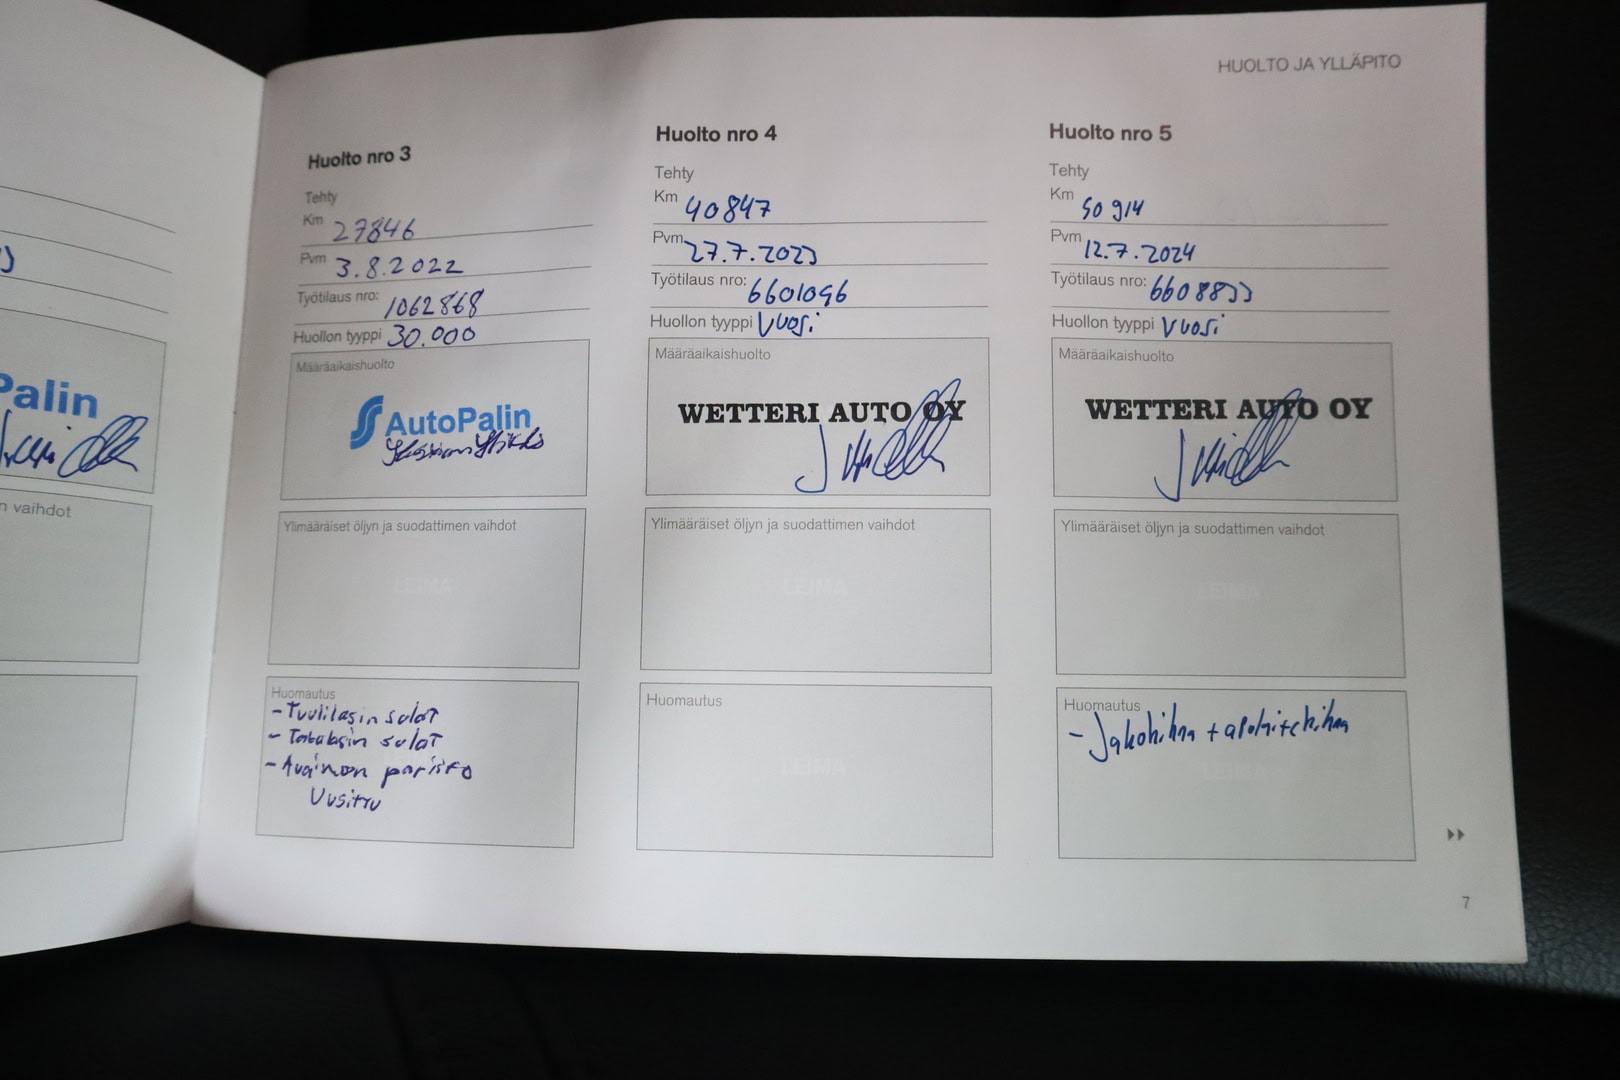 Palin
n vaihdot
HUOLTO JA YLLÄPITO
Huolto nro 3
Tehty
Km 27846
Pvm 3.8.2022
Työtilaus nro: 1062868
Huollon tyyppi 30.000
Määräaikaishuolto
AutoPalin
Ylimääräiset öljyn ja suodattimen vaihdot
LEIMA
Huomautus
-Tuulilasin sulat
- Takalasin sulat
-Avaimen paristo
Uusittu
Huolto nro 4
Tehty
Km 40847
Pvm 27.7.2023
Työtilaus nro: 6601096
Huollon tyyppi Vuosi
Määräaikaishuolto
WETTERI AUTO OY
Ylimääräiset öljyn ja suodattimen vaihdot
LEIMA
Huomautus
LEIMA
Huolto nro 5
Tehty
Km 50 914
Pvm 12.7.2024
Työtilaus nro: 6608833
Huollon tyyppi Vuosi
Määräaikaishuolto
WETTERI AUTO OY
Ylimääräiset öljyn ja suodattimen vaihdot
LEIMA
Huomautus
- Jakohihna + apulaitehihna
LEIMA
7